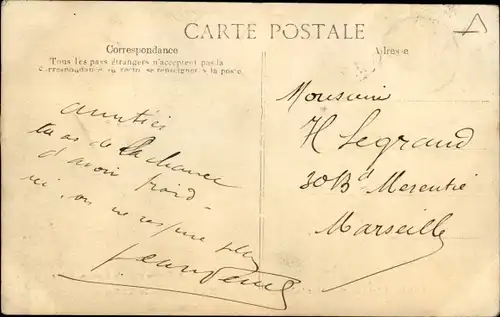 CARTE POSTALE
Correspondance
Tous les pays étrangers n'acceptent pas la
correspondance au recto, se renseigner à la poste.
Adresse
amitiés
tu as de la chance
d'avoir froid -
ici, on ne respire plus
Monsieur
H Legrand
30 Bd
Marseille